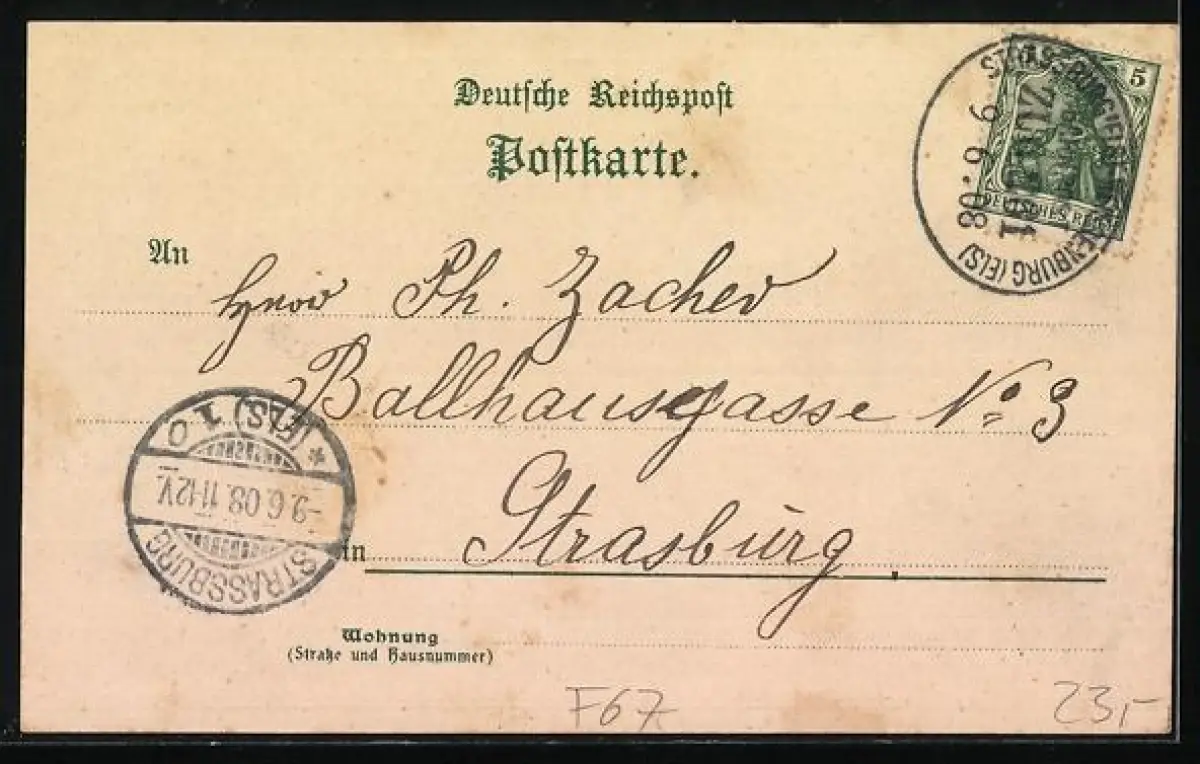 Deutsche Reichspost
Postkarte.
5
DEUTSCHES REICH
STRASSBURG (ELS)
ZUG
1
9 6 . 08
ENBURG (ELS)
An
Herrn Ph. Zacher
Ballhausgasse No 3
in Strasburg
STRASSBURG
-9.6.08. 11-12V.
* (ELS) 1 o
Wohnung
(Straße und Hausnummer)
F67
23,-